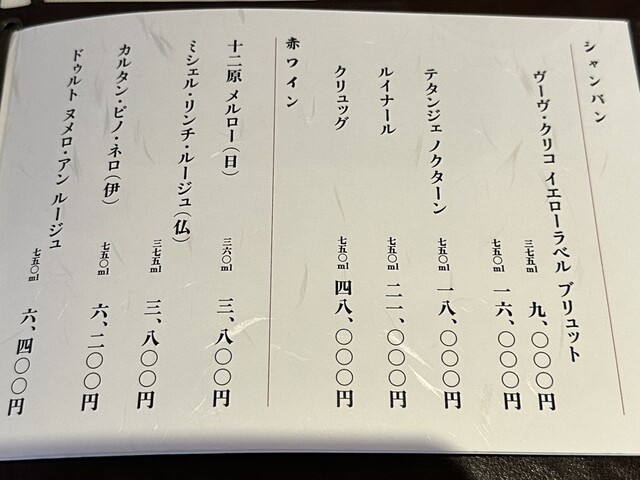 シャンパン
ヴーヴ・クリコ イエローラベル ブリュット
三七五ml 九、〇〇〇円
七五〇ml 一六、〇〇〇円
テタンジェ ノクターン 七五〇ml 一八、〇〇〇円
ルイナール 七五〇ml 二一、〇〇〇円
クリュッグ 七五〇ml 四八、〇〇〇円
赤ワイン
十二原 メルロー（日） 三六〇ml 三、八〇〇円
ミシェル・リンチ・ルージュ（仏） 三七五ml 三、八〇〇円
カルタン・ピノ・ネロ（伊） 七五〇ml 六、二〇〇円
ドゥルト ヌメロ・アン ルージュ 七五〇ml 六、四〇〇円